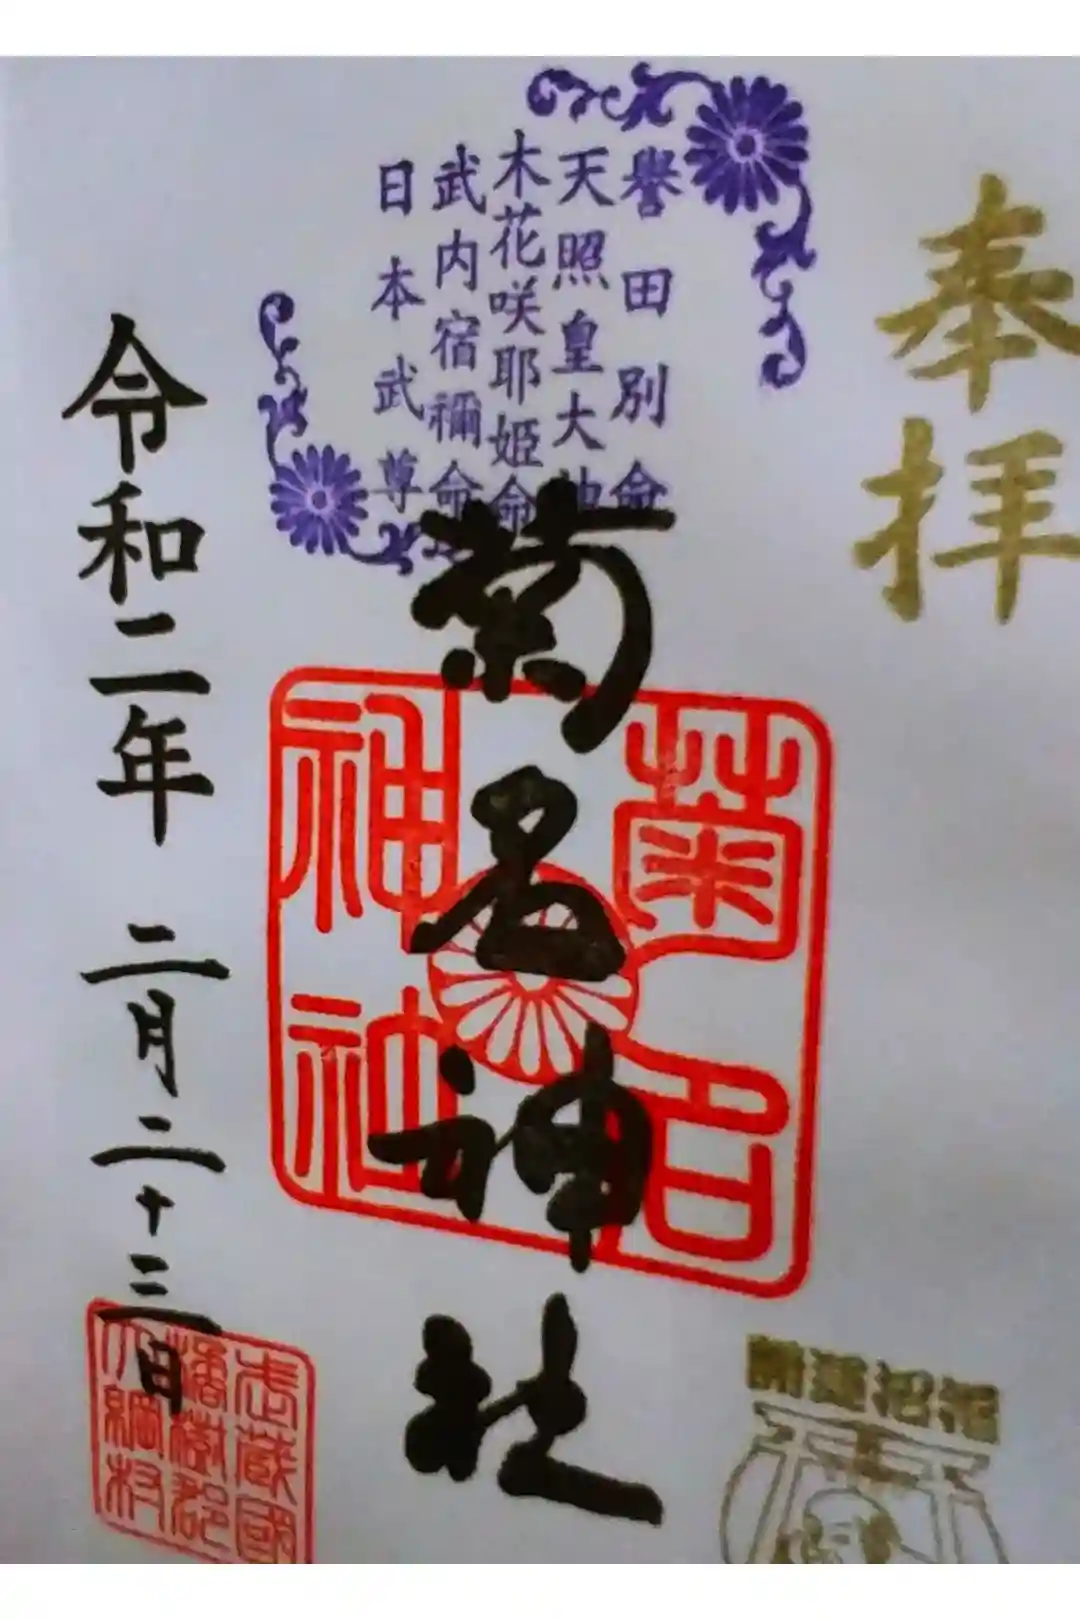 奉拝
譽田別命
天照皇大神
木花咲耶姫命
武内宿禰命
日本武尊
菊名神社
菊名
神社
令和二年 二月二十三日
開運招福
武蔵國
橘樹郡
大綱村